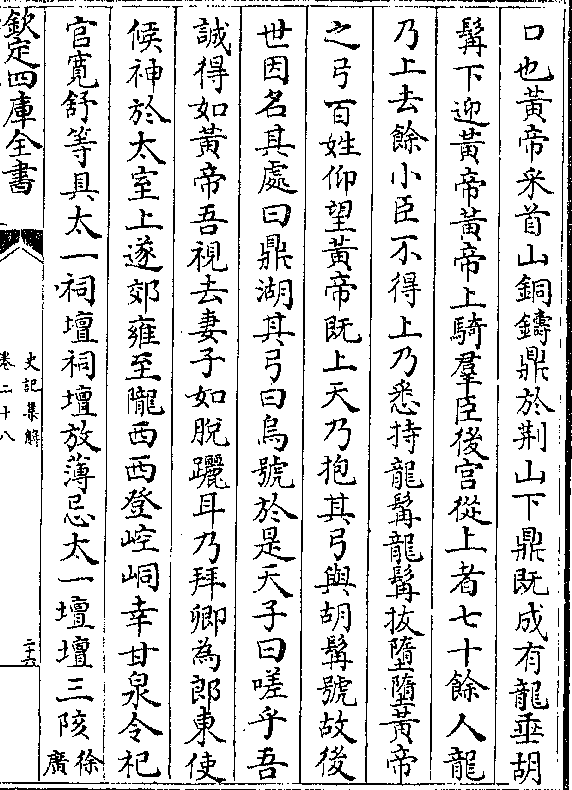 口也黃帝采首山銅鑄鼎於荆山下鼎既成有龍垂胡
髯下迎黃帝黃帝上騎羣臣後宮從上者七十餘人龍
乃上去餘小臣不得上乃悉持龍髯龍髯拔墮墮黃帝
之弓百姓仰望黃帝既上天乃抱其弓與胡髯號故後
世因名其處曰鼎湖其弓曰烏號於是天子曰嗟乎吾
誠得如黃帝吾視去妻子如脫躧耳乃拜卿為郎東使
候神於太室上遂郊雍至隴西西登崆峒幸甘泉令祀
官寛舒等具太一祠壇祠壇放薄忌太一壇壇三陔徐
廣
欽定四庫全書
史記集解
卷二十八
二十六